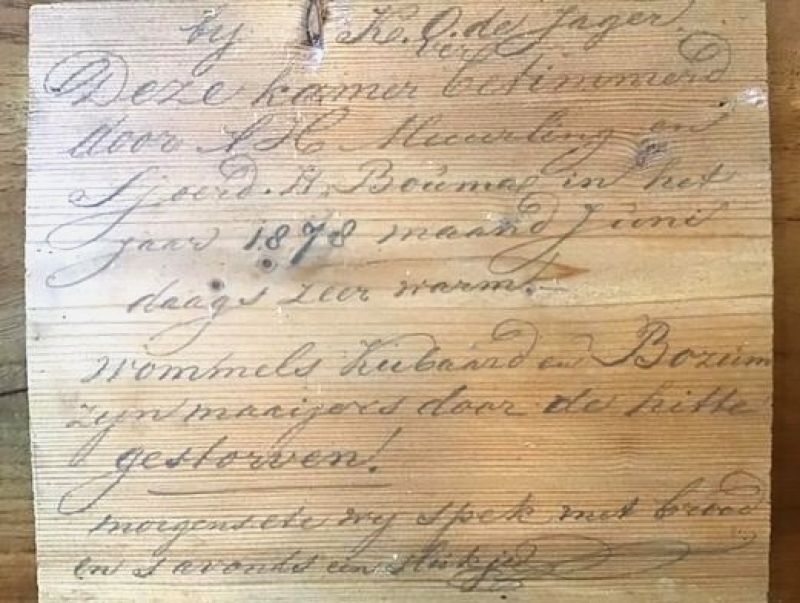 by K. O. de Jager.
Deze kamer vertimmerd
door A H Meuurling en
Sjoerd. H. Bouma in het
jaar 1878 maand Juni
daags zeer warm.
Wommels Kubaard en Bozum
zyn maaijers door de hitte
gestorven!
morgens ete wy spek met brood
en s avonds een stukje